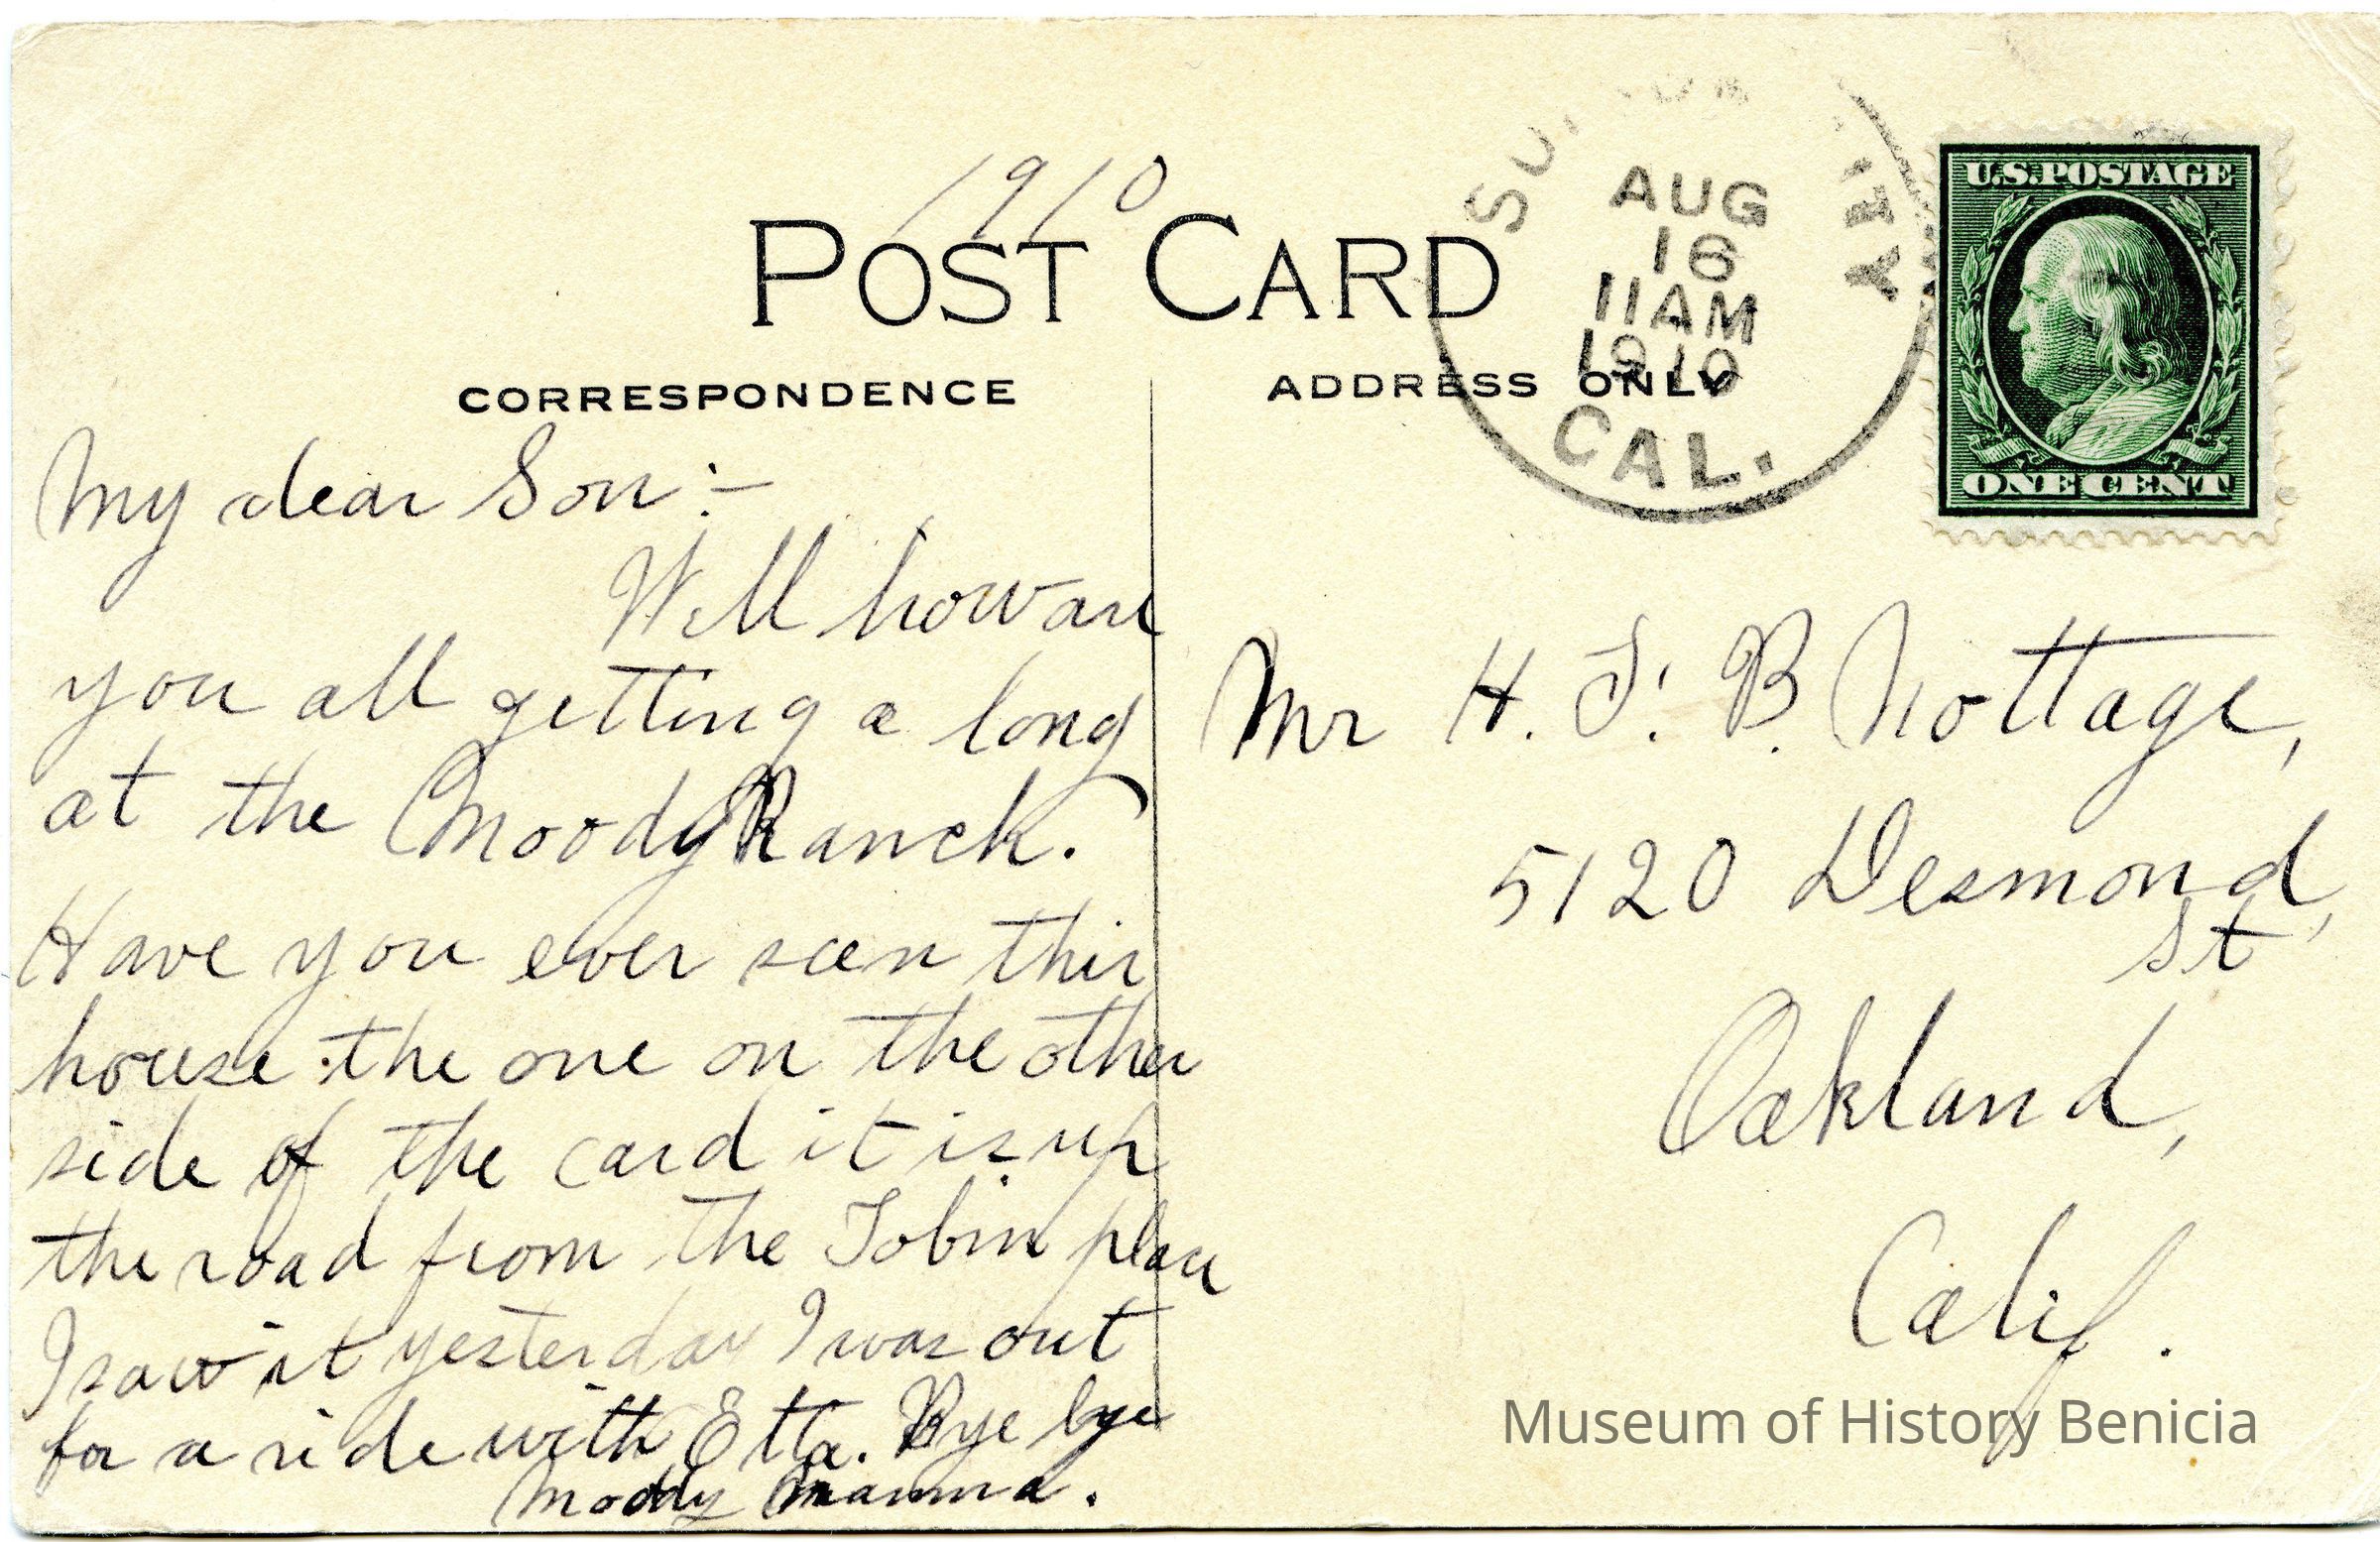 1910
POST CARD
CORRESPONDENCE
ADDRESS ONLY
AUG
16
11AM
1910
CAL.
U.S. POSTAGE
ONE CENT
My dear Son:-
Well how are
you all getting a long
at the Moody Ranch.
Have you ever seen this
house the one on the other
side of the card it is up
the road from the Tobin place
I saw it yesterday I was out
for a ride with Etta. Bye bye
Moddy Mamma.
Mr H. F. B. Nottage,
5120 Desmond,
St
Oakland,
Calif.
Museum of History Benicia